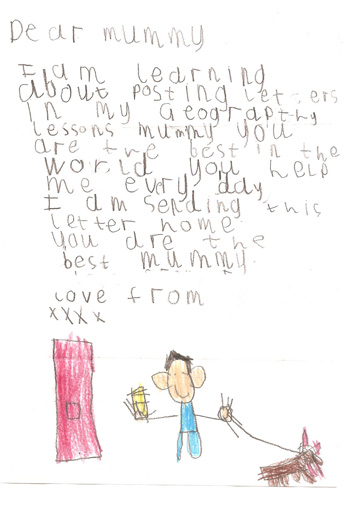 Dear mummy
I am learning
about posting letters
in my Geograpthy
lessons mummy you
are the best in the
world you help
me every day
I am sending this
letter home
you are the
best mummy.
Love from
xxxx